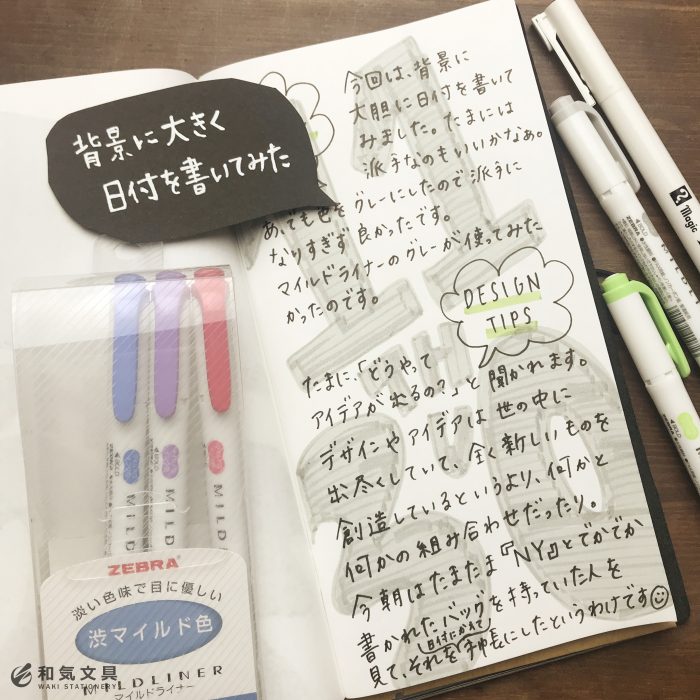 背景に大きく
日付を書いてみた
今回は、背景に
大胆に日付を書いて
みました。たまには
派手なのもいいかなあ。
あ、でも色をグレーにしたので派手に
なりすぎず良かったです。
マイルドライナーのグレーが使ってみた
かったのです。
DESIGN
TIPS
たまに、「どうやって
アイデアが出るの?」と聞かれます。
デザインやアイデアは世の中に
出尽くしていて、全く新しいものを
創造しているというより、何かと
何かの組み合わせだったり。
今朝はたまたま『NY』とでかでか
書かれたバッグを持っていた人を
日付にかえて
見て、それを手帳にしたというわけです☺
11
30
ZEBRA
淡い色味で目に優しい
渋マイルド色
MILDLINER
マイルドライナー
MILD
MILD
MILD
Magic
ZEBRA
MILD
和気文具
WAKI STATIONERY